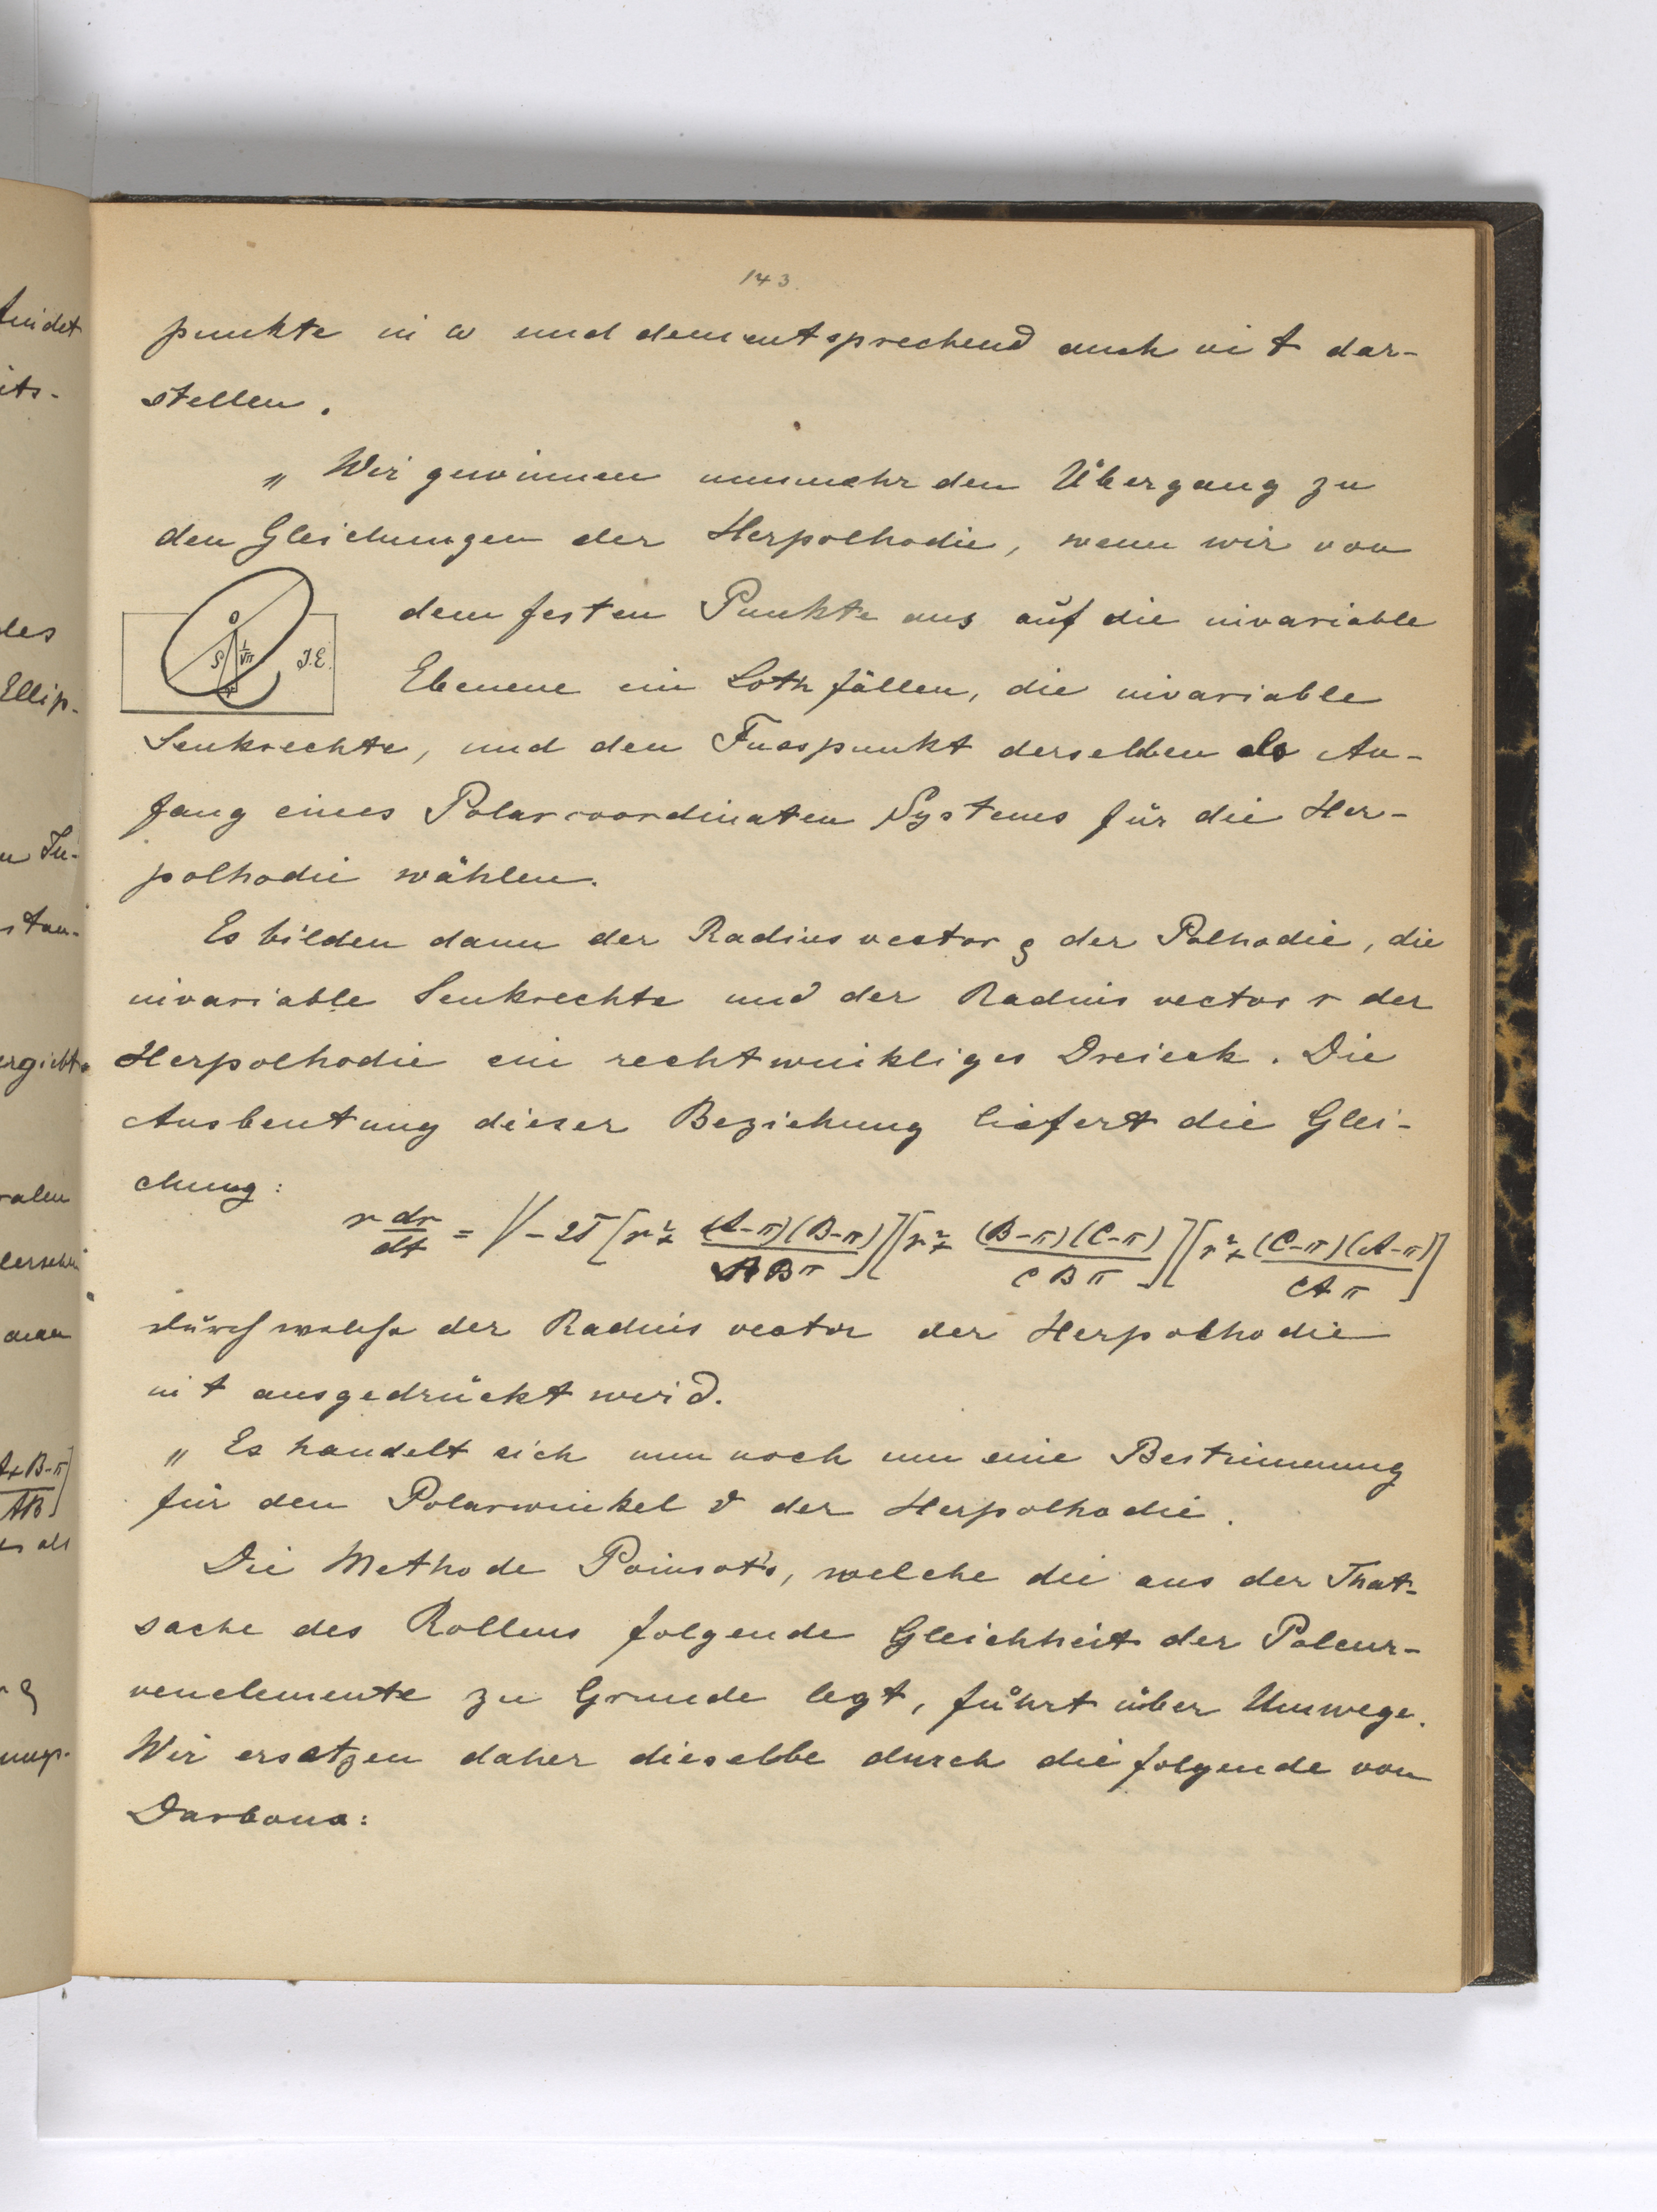 findet
its-
des
Ellip-
n In-
stan-
ergiebt
ralen
man
A+B-π]
AB
es als
ungs-
143
punkte in ω und dementsprechend auch in t dar-
stellen.
„ Wir gewinnen nunmehr den Übergang zu
den Gleichungen der Herpolhodie, wenn wir von
O
ρ 1/√π J.E.
r
dem festen Punkte aus auf die invariable
Ebenene ein Loth fällen, die invariable
Senkrechte, und den Fusspunkt derselben als An-
fang eines Polarcoordinaten Systems für die Her-
polhodie wählen.
Es bilden dann der Radius vector ρ der Polhodie, die
invariable Senkrechte und der Radius vector r der
Herpolhodie ein rechtwinkliges Dreieck. Die
Ausbeutung dieser Beziehung liefert die Glei-
chung:
r dr/dt = √-2T [r² + (A-π)(B-π)/ABπ][r² + (B-π)(C-π)/CBπ][r² + (C-π)(A-π)/CAπ]
durch welche der Radius vector der Herpolhodie
in t ausgedrückt wird.
„ Es handelt sich nun noch um eine Bestimmung
für den Polarwinkel ϑ der Herpolhodie.
Die Methode Poinsot's, welche die aus der That-
sache des Rollens folgende Gleichheit der Polcur-
venelemente zu Grunde legt, führt über Umwege.
Wir ersetzen daher dieselbe durch die folgende von
Darboux: